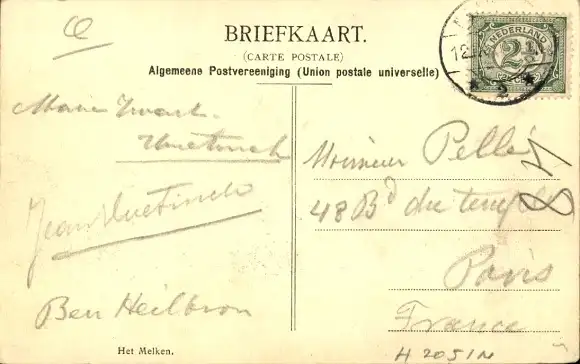 BRIEFKAART.
(CARTE POSTALE)
Algemeene Postvereeniging (Union postale universelle)
NEDERLAND
2½
12.
2
Marie Zwart-
Jean
Ben Heilbron
Monsieur Pellé
48 Bd du temple
Paris
France
Het Melken.
H 2051N